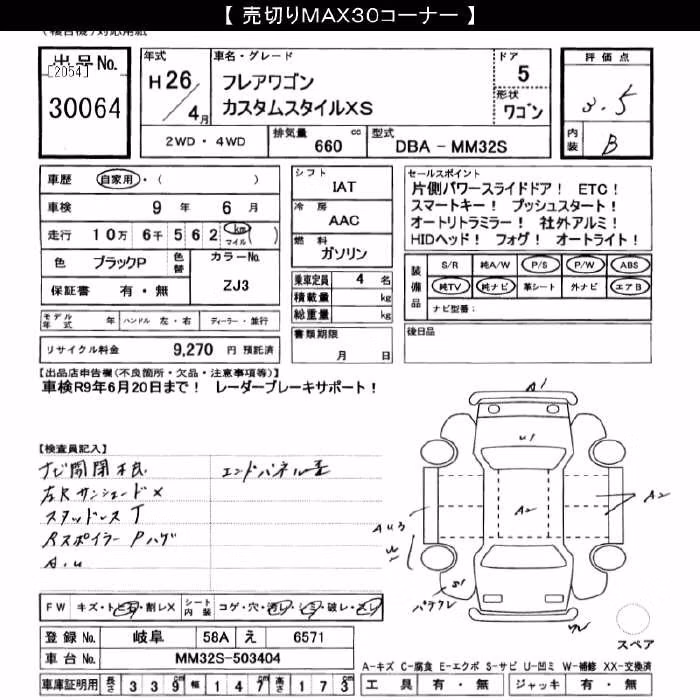 【 売切りMAX30コーナー 】
出品No.
[2054]
30064
年式
H26/4月
車名・グレード
フレアワゴン
カスタムスタイルXS
ドア
5
形状
ワゴン
評価点
3.5
内装
B
2WD・4WD
排気量 660 cc
型式 DBA － MM32S
車歴 自家用・( )
車検 9 年 6 月
走行 10万 6千 5 6 2 km マイル ( )
色 ブラックP
色替
カラーNo.
ZJ3
保証書 有・無
シフト
IAT
冷房
AAC
燃料
ガソリン
乗車定員 4 名
積載量 kg
総重量 kg
セールスポイント
片側パワースライドドア！ ETC！
スマートキー！ プッシュスタート！
オートリトラミラー！ 社外アルミ！
HIDヘッド！ フォグ！ オートライト！
装備品
S/R 純A/W P/S P/W ABS
純TV 純ナビ 革シート 外ナビ エアB
ナビ型番：
モデル年式 年 ハンドル 左・右 ディーラー・並行
リサイクル料金 9,270 円 預託済
書類期限
月 日
後日品
【出品店申告欄(不良箇所・欠品・注意事項等)】
車検R9年6月20日まで！ レーダーブレーキサポート！
【検査員記入】
ナビ開閉不良
エンドパネル歪
左Rサンシェード×
スタッドレス T
Rスポイラー Pハゲ
A.u
A1
u1
A2
A2
Au3
w
S1
パテワレ
FW キズ・トビ石・割レX シート内装 コゲ・穴・汚レ・シミ・破レ・スレ
登録No. 岐阜 58A え 6571
車台No. MM32S-503404
スペア
A-キズ C-腐食 E-エクボ S-サビ U-凹ミ W-補修 XX-交換済
車庫証明用 長さ 3 3 9 cm 幅 1 4 7 cm 高さ 1 7 3 cm
工具 有・無 ジャッキ 有・無